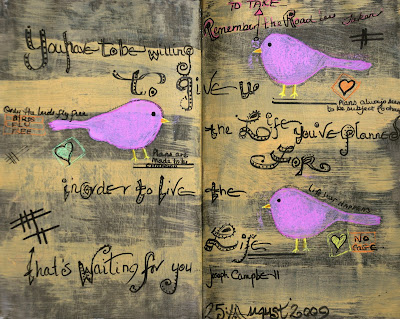 TO TAKE
Remember the Road
You have to be willing
to give up
Plans always seem
to be subject to
Only the birds fly free
BIRDS
FLY
FREE
the Life You've planned
Plans are
made to be
FOR
in order to live the
Life just happens
Life
NO
CAGE
that's Waiting for you
Joseph Campbell
25th August 2009